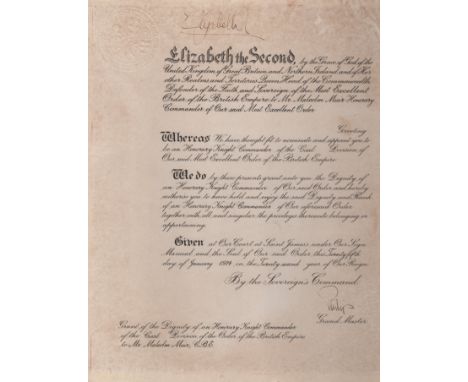 Elizabeth
Elizabeth the Second, by the Grace of God of the
United Kingdom of Great Britain and Northern Ireland and of Her
other Realms and Territories Queen, Head of the Commonwealth,
Defender of the Faith and Sovereign of the Most Excellent
Order of the British Empire to Mr. Malcolm Muir Honorary
Commander of Our said Most Excellent Order
Greeting
Whereas We have thought fit to nominate and appoint you to
be an Honorary Knight Commander of the Civil Division of
Our said Most Excellent Order of the British Empire
We do by these presents grant unto you the Dignity of
an Honorary Knight Commander of Our said Order and hereby
authorise you to have hold and enjoy the said Dignity and Rank
of an Honorary Knight Commander of Our aforesaid Order
together with all and singular the privileges thereunto belonging or
appertaining.
Given at Our Court at Saint James's under Our Sign
Manual and the Seal of Our said Order this Twenty fifth
day of January 1974 in the Twenty second year of Our Reign.
By the Sovereign's Command.
Grand Master
Grant of the Dignity of an Honorary Knight Commander
of the Civil Division of the Order of the British Empire
to Mr. Malcolm Muir, C.B.E.